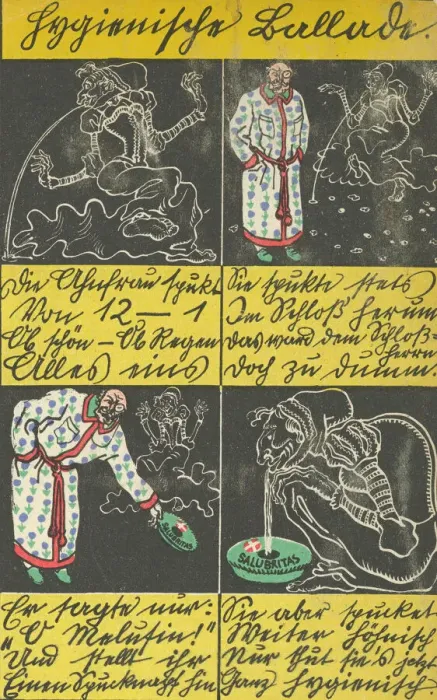 Hygienische Ballade.
Die Ahnfrau spukt
Von 12 – 1
Ob schön – Ob Regen
Alles eins
Sie spukte stets
Im Schloß herum
Das ward dem Schloß-
herrn
Doch zu dumm.
SALUBRITAS
SALUBRITAS
Er sagte nur:
"O Melusin!"
Und stellt ihr
Einen Spucknapf hin
Sie aber spucket
Weiter höhnisch
Nur thut sie's jetzt
Ganz hygienisch